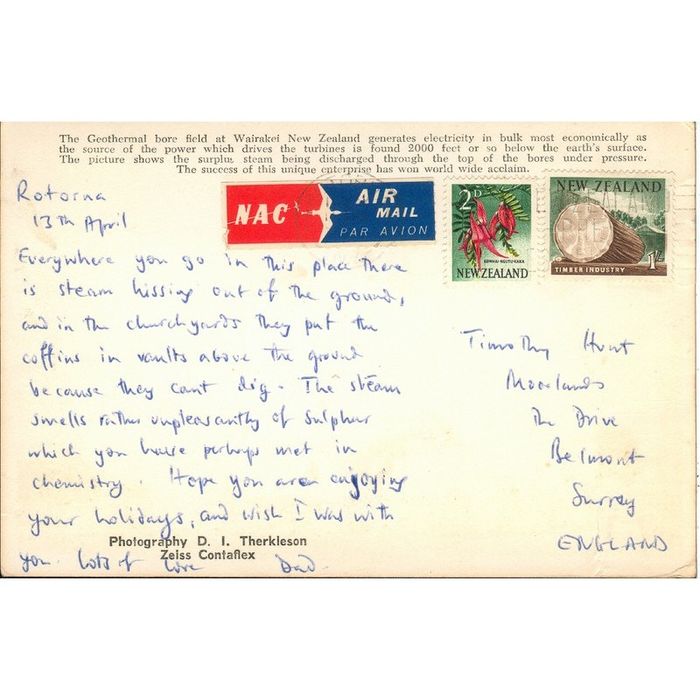 The Geothermal bore field at Wairakei New Zealand generates electricity in bulk most economically as
the source of the power which drives the turbines is found 2000 feet or so below the earth's surface.
The picture shows the surplus steam being discharged through the top of the bores under pressure.
The success of this unique enterprise has won world wide acclaim.
NAC
AIR
MAIL
PAR AVION
2D
KOWHAI NGUTU-KAKA
NEW ZEALAND
NEW ZEALAND
TIMBER INDUSTRY
1/-
Rotorua
13th April
Everywhere you go in this place there
is steam hissing out of the ground,
and in the churchyards they put the
coffins in vaults above the ground
because they cant dig. The steam
smells rather unpleasantly of Sulphur
which you have perhaps met in
chemistry. Hope you are enjoying
your holidays, and wish I was with
you. Lots of love Dad.
Photography D. I. Therkleson
Zeiss Contaflex
Timothy Hunt
Moorlands
The Drive
Belmont
Surrey
ENGLAND